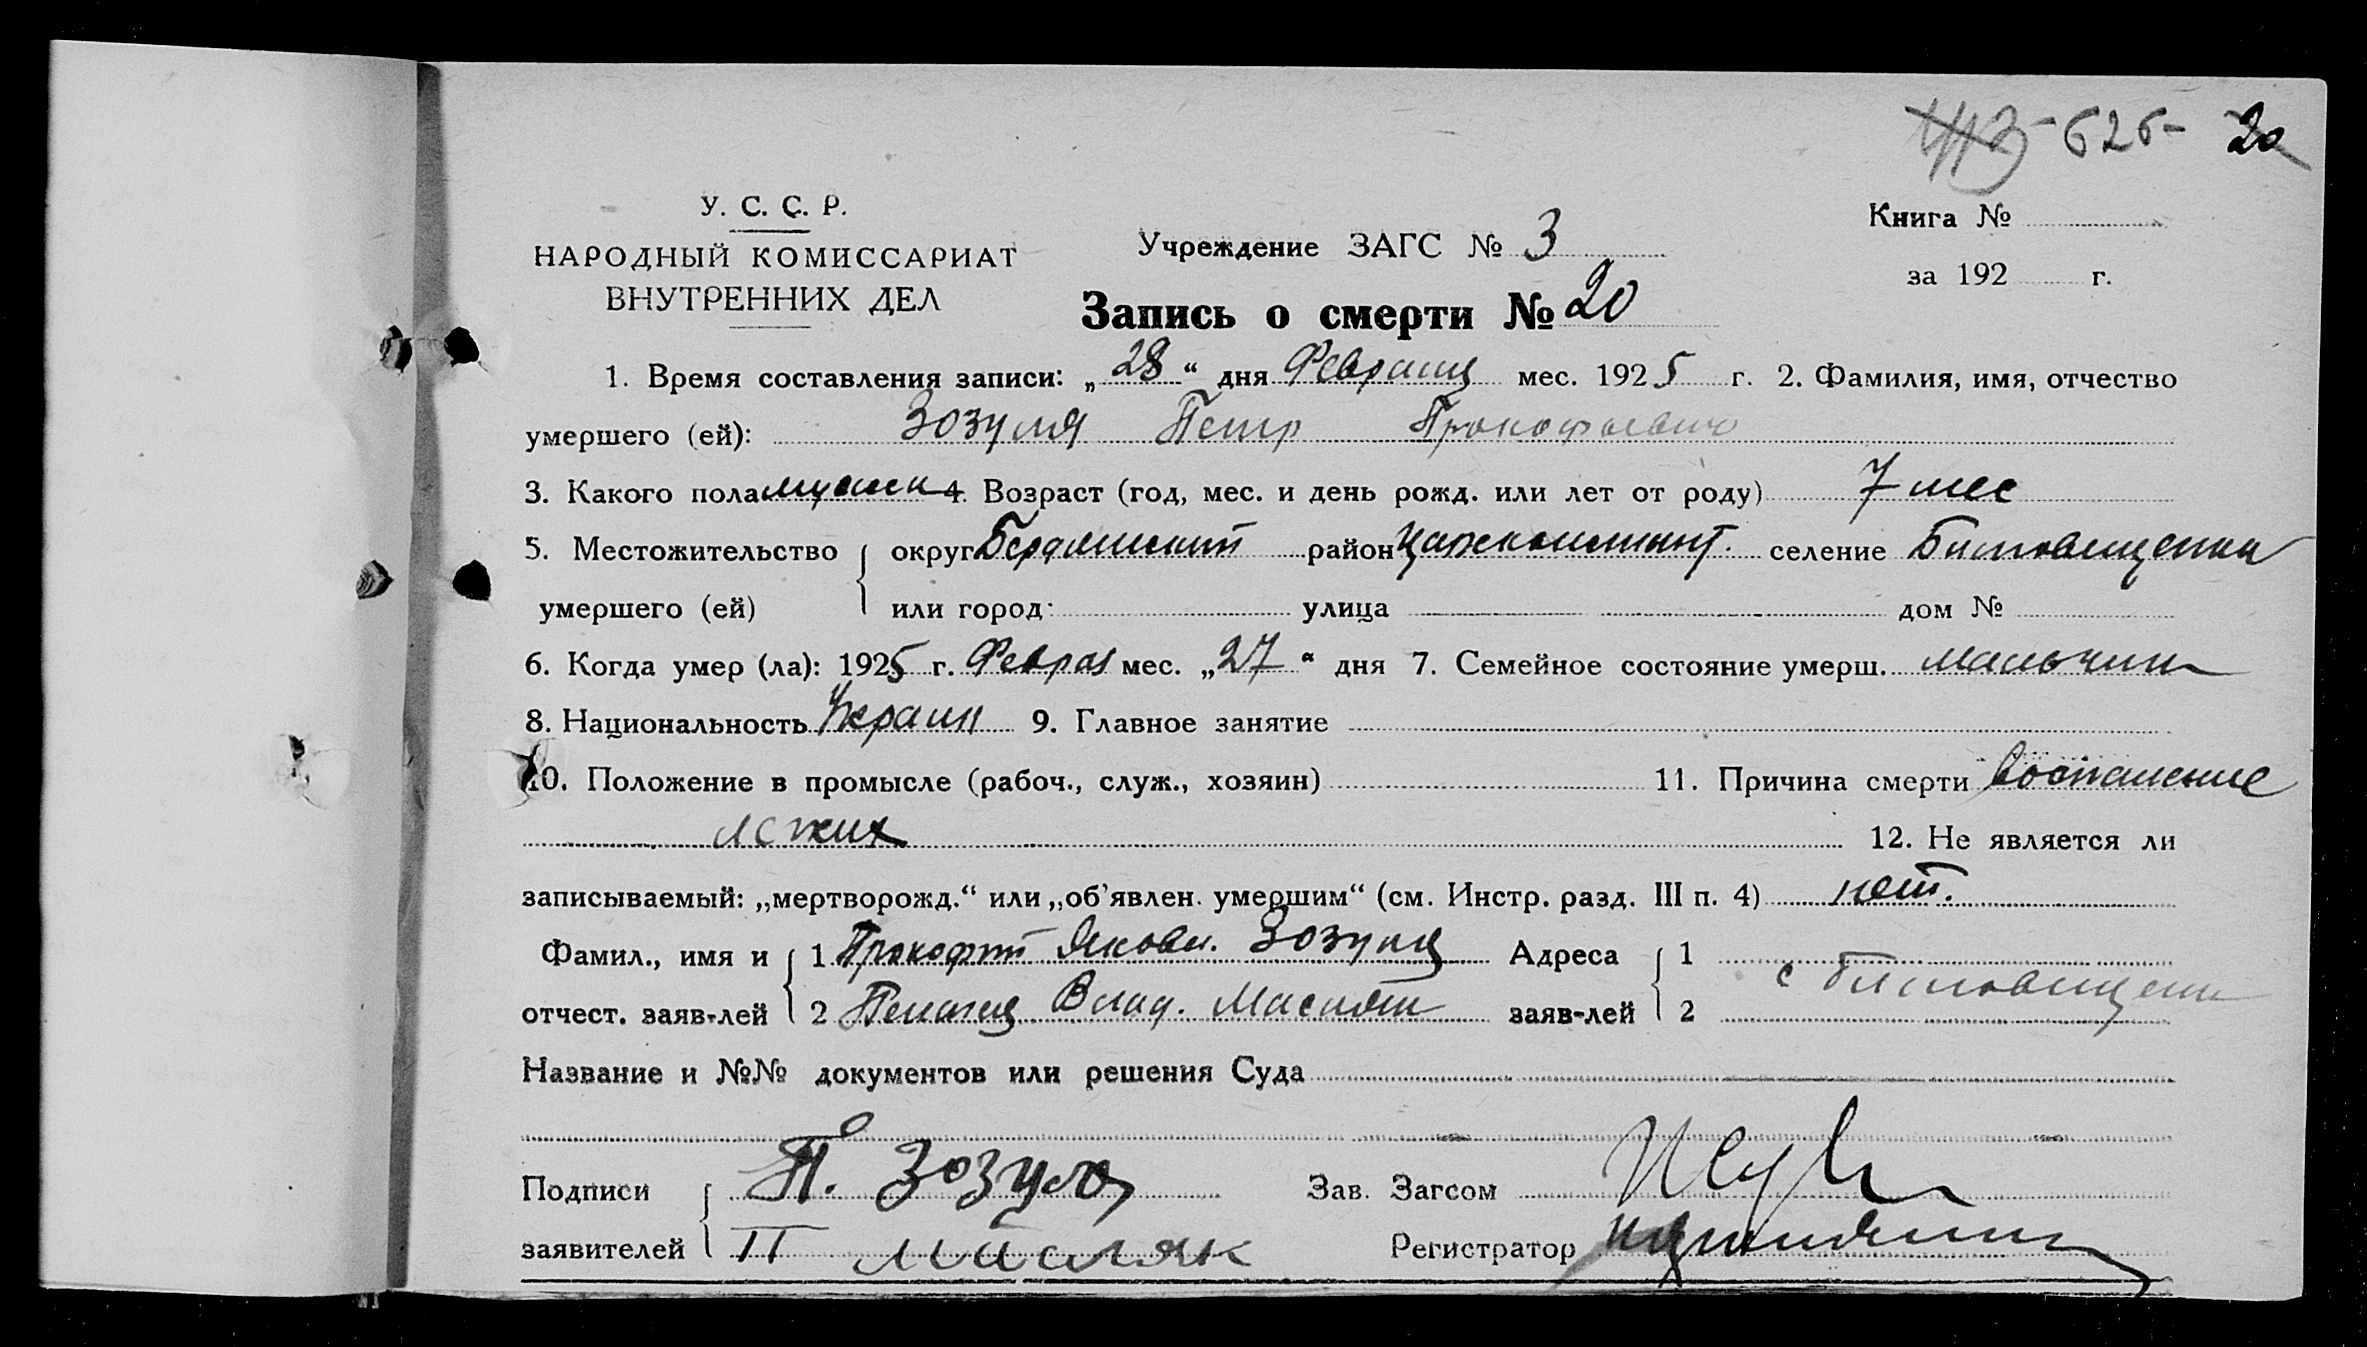 626- 20
У. С. С. Р.
НАРОДНЫЙ КОМИССАРИАТ
ВНУТРЕННИХ ДЕЛ
Учреждение ЗАГС № 3
Книга №
за 192 г.
Запись о смерти № 20
1. Время составления записи: „28“ дня Февраля мес. 1925 г. 2. Фамилия, имя, отчество
умершего (ей): Зозуля Петр Прокофьевич
3. Какого пола мужск 4. Возраст (год, мес. и день рожд. или лет от роду) 7 мес
5. Местожительство округ Бердянский район Цареконстант. селение
умершего (ей) или город: улица дом №
6. Когда умер (ла): 1925 г. Феврал мес. „27“ дня 7. Семейное состояние умерш. мальчик
8. Национальность Украин 9. Главное занятие
10. Положение в промысле (рабоч., служ., хозяин) 11. Причина смерти Воспаление
легких 12. Не является ли
записываемый: „мертворожд.“ или „об'явлен. умершим“ (см. Инстр. разд. III п. 4) нет.
Фамил., имя и 1 Прокофий Яковл. Зозуля Адреса 1
с
отчест. заяв-лей 2 Пелагея Влад. заяв-лей 2
Название и №№ документов или решения Суда
Подписи П. Зозуля Зав. Загсом
заявителей П Масляк Регистратор